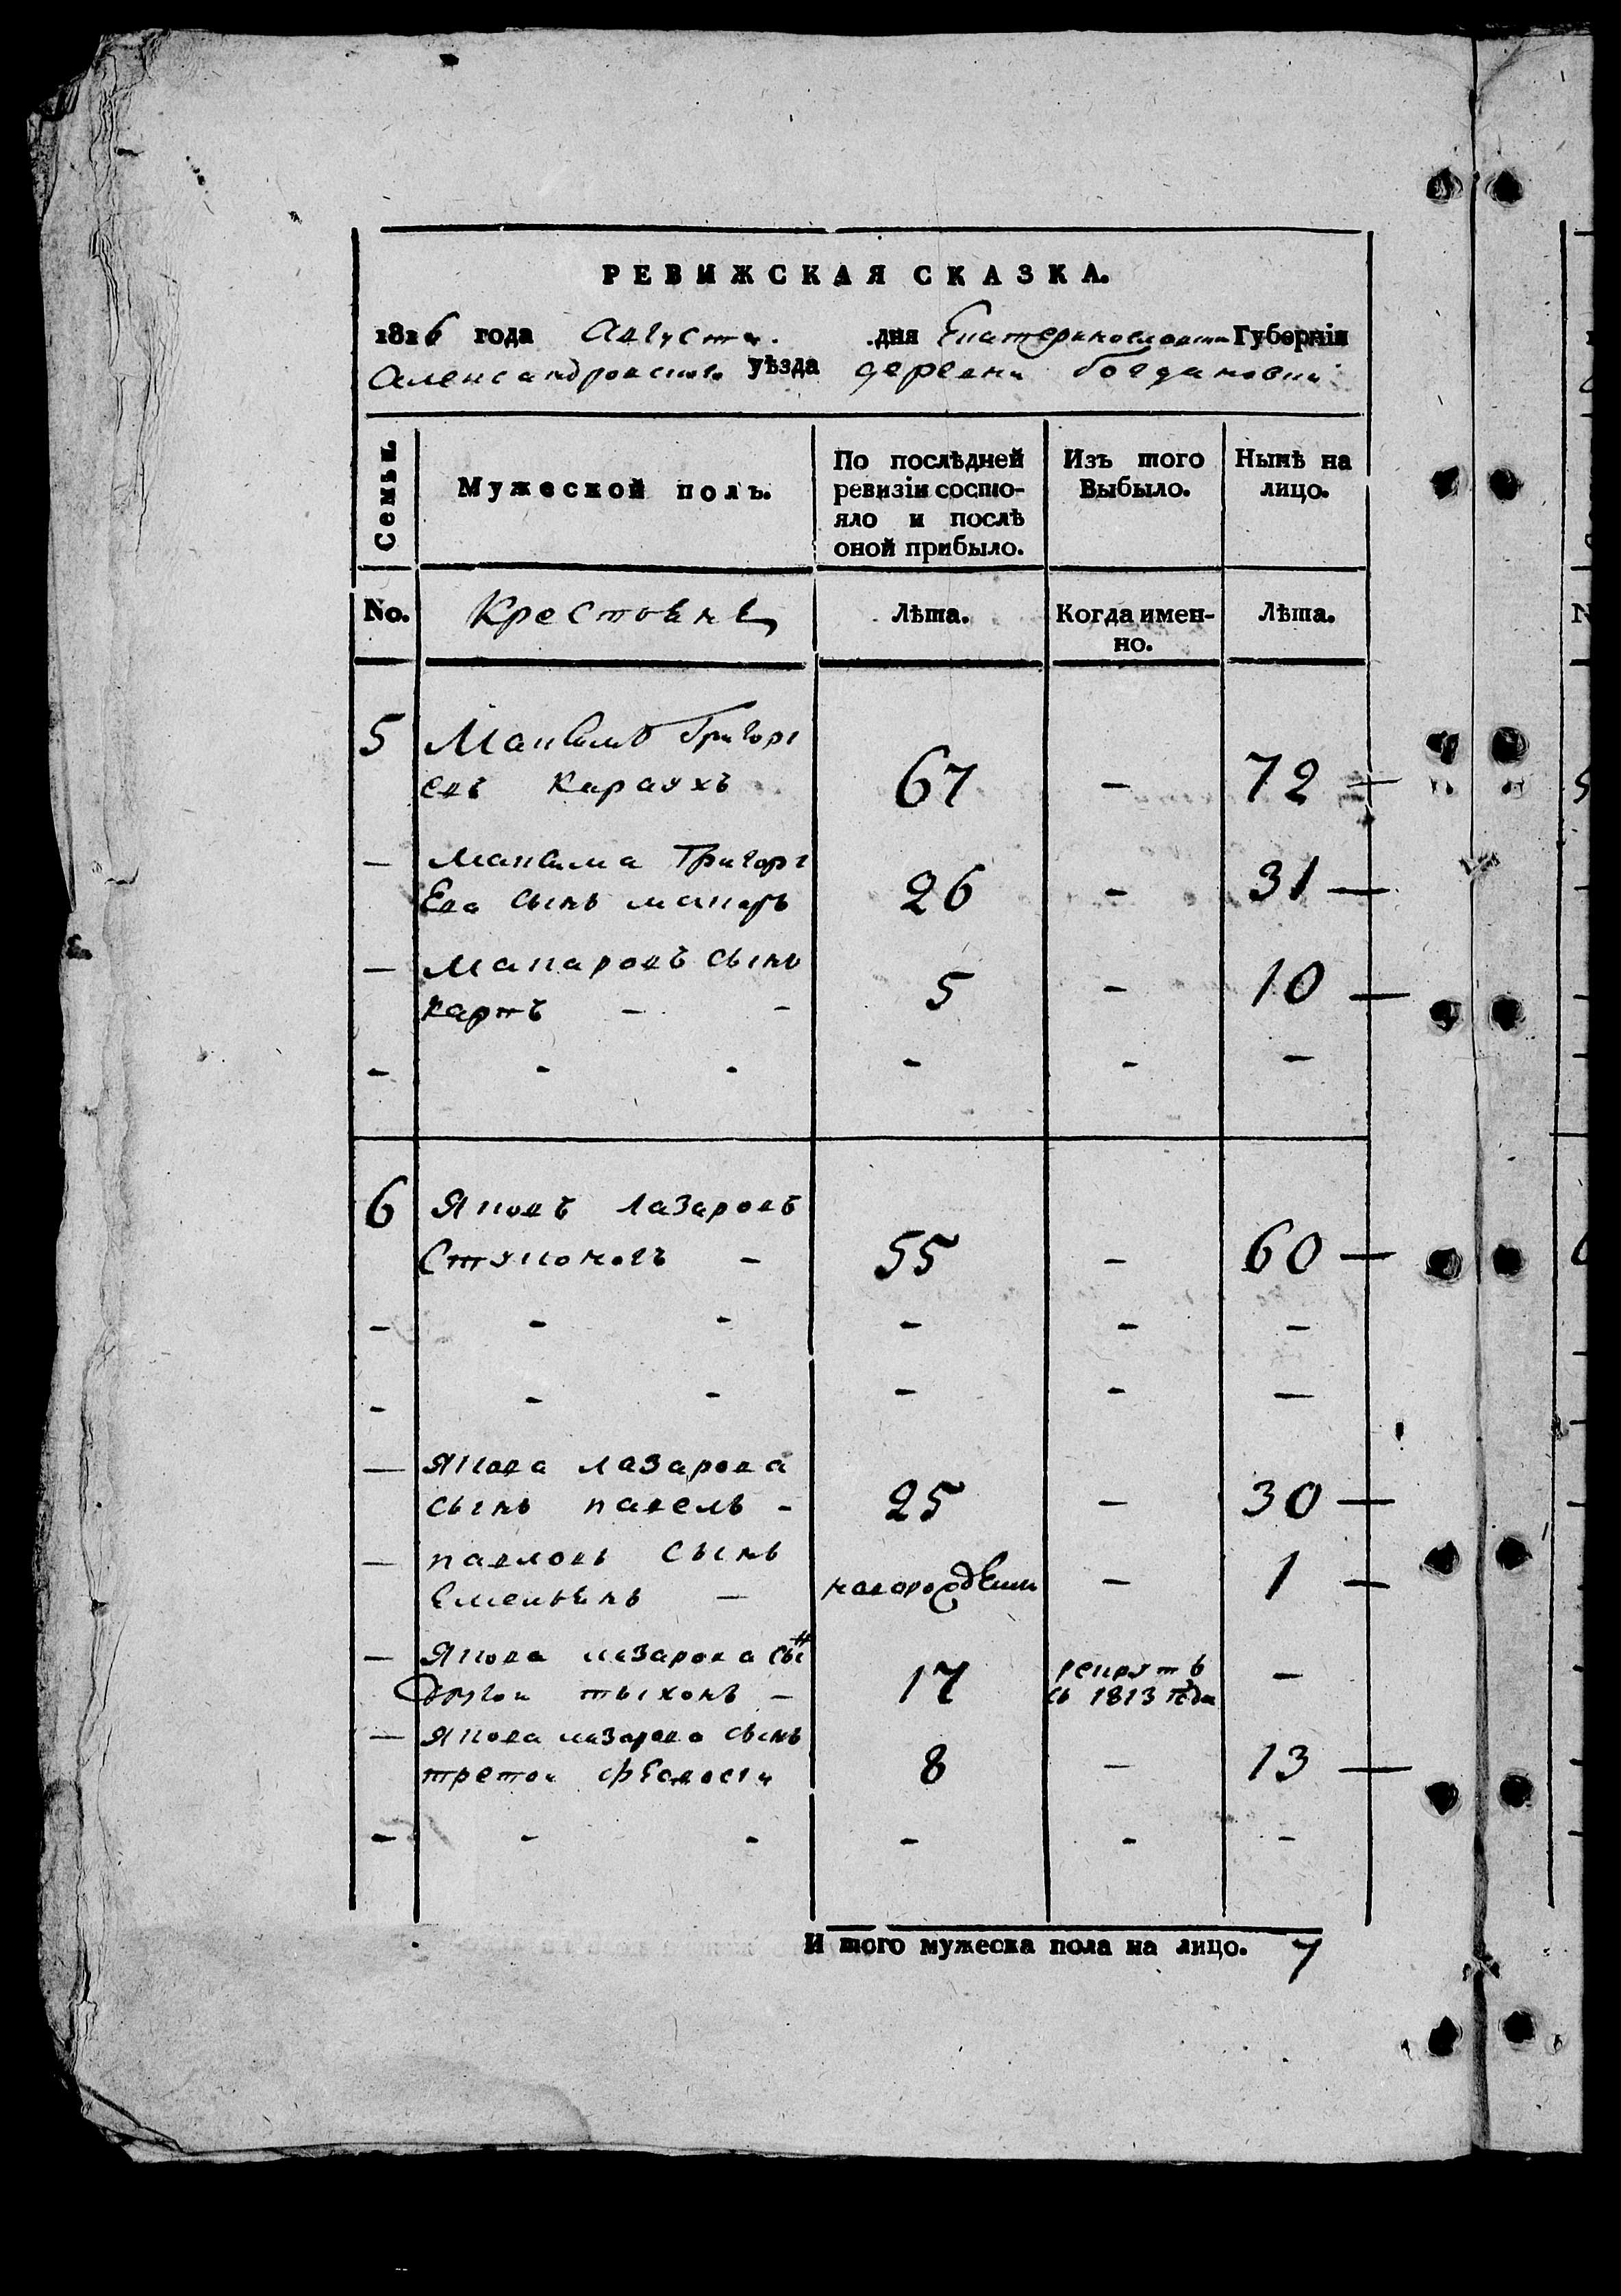 РЕВИЖСКАЯ СКАЗКА.
1816 года Августа. дня Екатеринославской Губернїи
Александровского уѣзда деревни богдановки
Семьи. Мужеской полъ. По послѣдней ревизїи состояло и послѣ оной прибыло. Изъ того Выбыло. Нынѣ на лицо.
No. Крестьяне Лѣта. Когда именно. Лѣта.
5 Максимъ Григорь
евъ Караухъ 67 - 72
- Максима Григорь
Ева сынъ макаръ 26 - 31
- Макаровъ сынъ
карпъ - - 5 - 10
- - - - - -
6 Яковъ лазаровъ
- 55 - 60
- - - - - -
- - - - - -
- Якова лазарова
сынъ павелъ - 25 - 30
- павловъ сынъ
Емельянъ - новорожденъ - 1
- Якова лазарова сын
другой тыхонъ - 17 рекрутъ съ 1813 года -
- Якова лазарова сынъ
третой феодосїй 8 - 13
- - - - - -
И того мужеска пола на лицо. 7